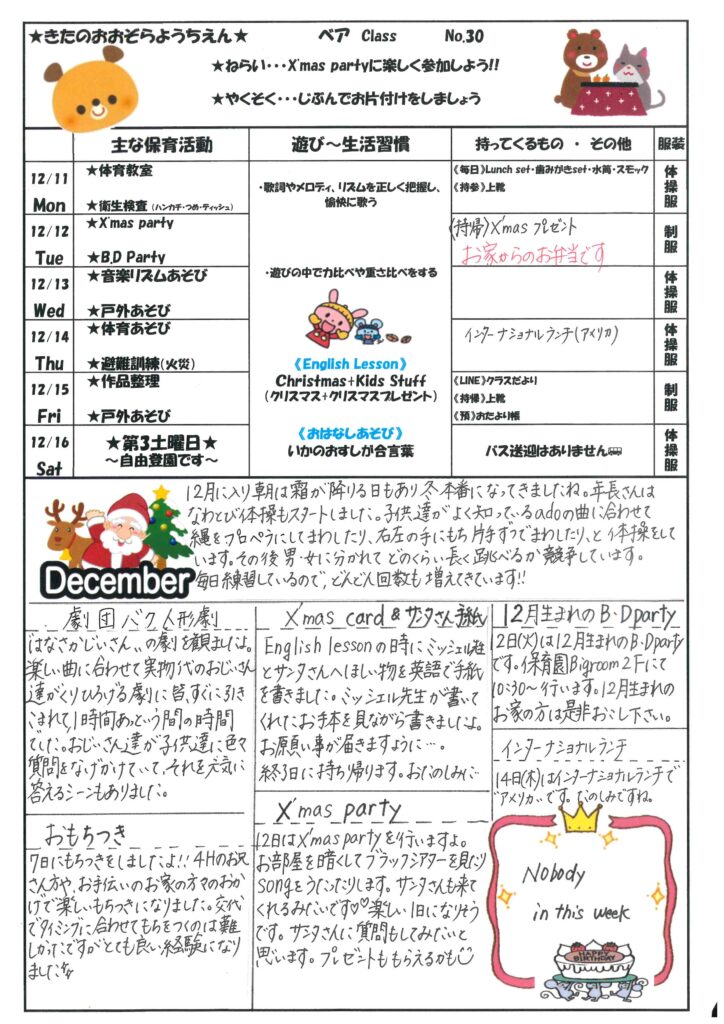 ★きたのおおぞらようちえん★ ベア Class No.30
★ねらい・・・X'mas partyに楽しく参加しよう!!
★やくそく・・・じぶんでお片付けをしましょう
主な保育活動 遊び～生活習慣 持ってくるもの ・ その他 服装
12/11 Mon
★体育教室
★衛生検査(ハンカチ・つめ・ティッシュ)
《毎日》Lunch set・歯みがきset・水筒・スモック
《持参》上靴
体操服
12/12 Tue
★X'mas party
★B.D Party
〈持帰〉X'mas プレゼント
お家からのお弁当です
制服
12/13 Wed
★音楽リズムあそび
★戸外あそび
体操服
12/14 Thu
★体育あそび
★避難訓練(火災)
インターナショナルランチ(アメリカ)
体操服
12/15 Fri
★作品整理
★戸外あそび
《LINE》クラスだより
《持帰》上靴
《預》おたより帳
制服
12/16 Sat
★第3土曜日★
～自由登園です～
バス送迎はありません
体操服
・歌詞やメロディ、リズムを正しく把握し、
愉快に歌う
・遊びの中で力比べや重さ比べをする
《English Lesson》
Christmas+Kids Stuff
(クリスマス+クリスマスプレゼント)
《おはなしあそび》
いかのおすしが合言葉
December
12月に入り朝は霜が降りる日もあり冬本番になってきましたね。年長さんは
なわとび体操もスタートしました。子供達がよく知っているadoの曲に合わせて
縄をプロペラにしてまわしたり、右左の手にもち片手ずつでまわしたり、と体操をして
います。その後男・女に分かれてどのくらい長く跳べるか競争しています。
毎日練習しているので、どんどん回数も増えてきています!!
劇団バク人形劇
"はなさかじいさん"の劇を観ましたよ。
楽しい曲に合わせて実物代のおじいさん
達がくりひろげる劇に皆、すぐに引き
こまれて、1時間あっという間の時間
でした。おじいさん達が子供達に色々
質問をなげかけていて、それを元気に
答えるシーンもありました。
おもちつき
7日にもちつきをしましたよ!! 4Hのお兄
さん方や、お手伝いのお家の方々のおか
げで楽しいもちつきになりました。交代
でタイミングに合わせてもちをつくのは難し
かったですがとても良い経験になり
ました
X'mas card & サンタさん手紙
English lessonの時にミッシェル先生
とサンタさんへほしい物を英語で手紙
を書きました。ミッシェル先生が書いて
くれたお手本を見ながら書きましたよ。
お願い事が届きますように…。
終了日に持ち帰ります。おたのしみに…
X'mas party
12日はX'mas partyを行いますよ。
お部屋を暗くしてブラックシアターを見たり
songをうたったりします。サンタさんも来て
くれるみたいです♡♡楽しい1日になりそう
です。サンタさんに質問もしてみたいと
思います。プレゼントももらえるかも
12月生まれのB・Dparty
12日(火)は12月生まれのB・Dparty
です。保育園Bigroom2Fにて
10:30～行います。12月生まれの
お家の方は是非お越し下さい。
インターナショナルランチ
14日(木)はインターナショナルランチで
"アメリカ"です。たのしみですね。
Nobody
in this week
HAPPY
BIRTHDAY